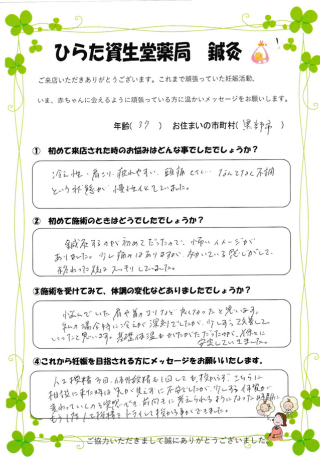 ひらた資生堂薬局 鍼灸
ご来店いただきありがとうございます。これまで頑張っていた妊娠活動、
いま、赤ちゃんに会えるように頑張っている方に温かいメッセージをお願いします。
年齢( 37 ) お住まいの市町村( 黒部市 )
① 初めて来店された時のお悩みはどんな事でしたでしょうか?
冷え性・肩こり・疲れやすい・頭痛 なんとなく不調
という状態が慢性化していました。
② 初めて施術のときはどうでしたでしょうか?
鍼灸するのが初めてだったので、怖いイメージが
ありました。少し痛みはありますが、効いている感じがして、
終わった後は スッキリしていました。
③施術を受けてみて、体調の変化などありましたでしょうか?
悩んでいた肩や首のこりなど良くなったと思います。
私の場合特に冷えが深刻でしたが、少しずつ改善して
いったと思います。基礎体温もガタガタだったのが、徐々に
安定していきました。
④これから妊娠を目指される方にメッセージをお願いいたします。
人工授精 体外授精も1回しても授からず、こちらに
相談に来た時は 不安でしたが、少しずつ体質が
変わっていくのを実感でき、前向きに考えられるようになった時期に
もう1度人工授精をトライして授かる事ができました。
ご協力いただきまして誠にありがとうございました。